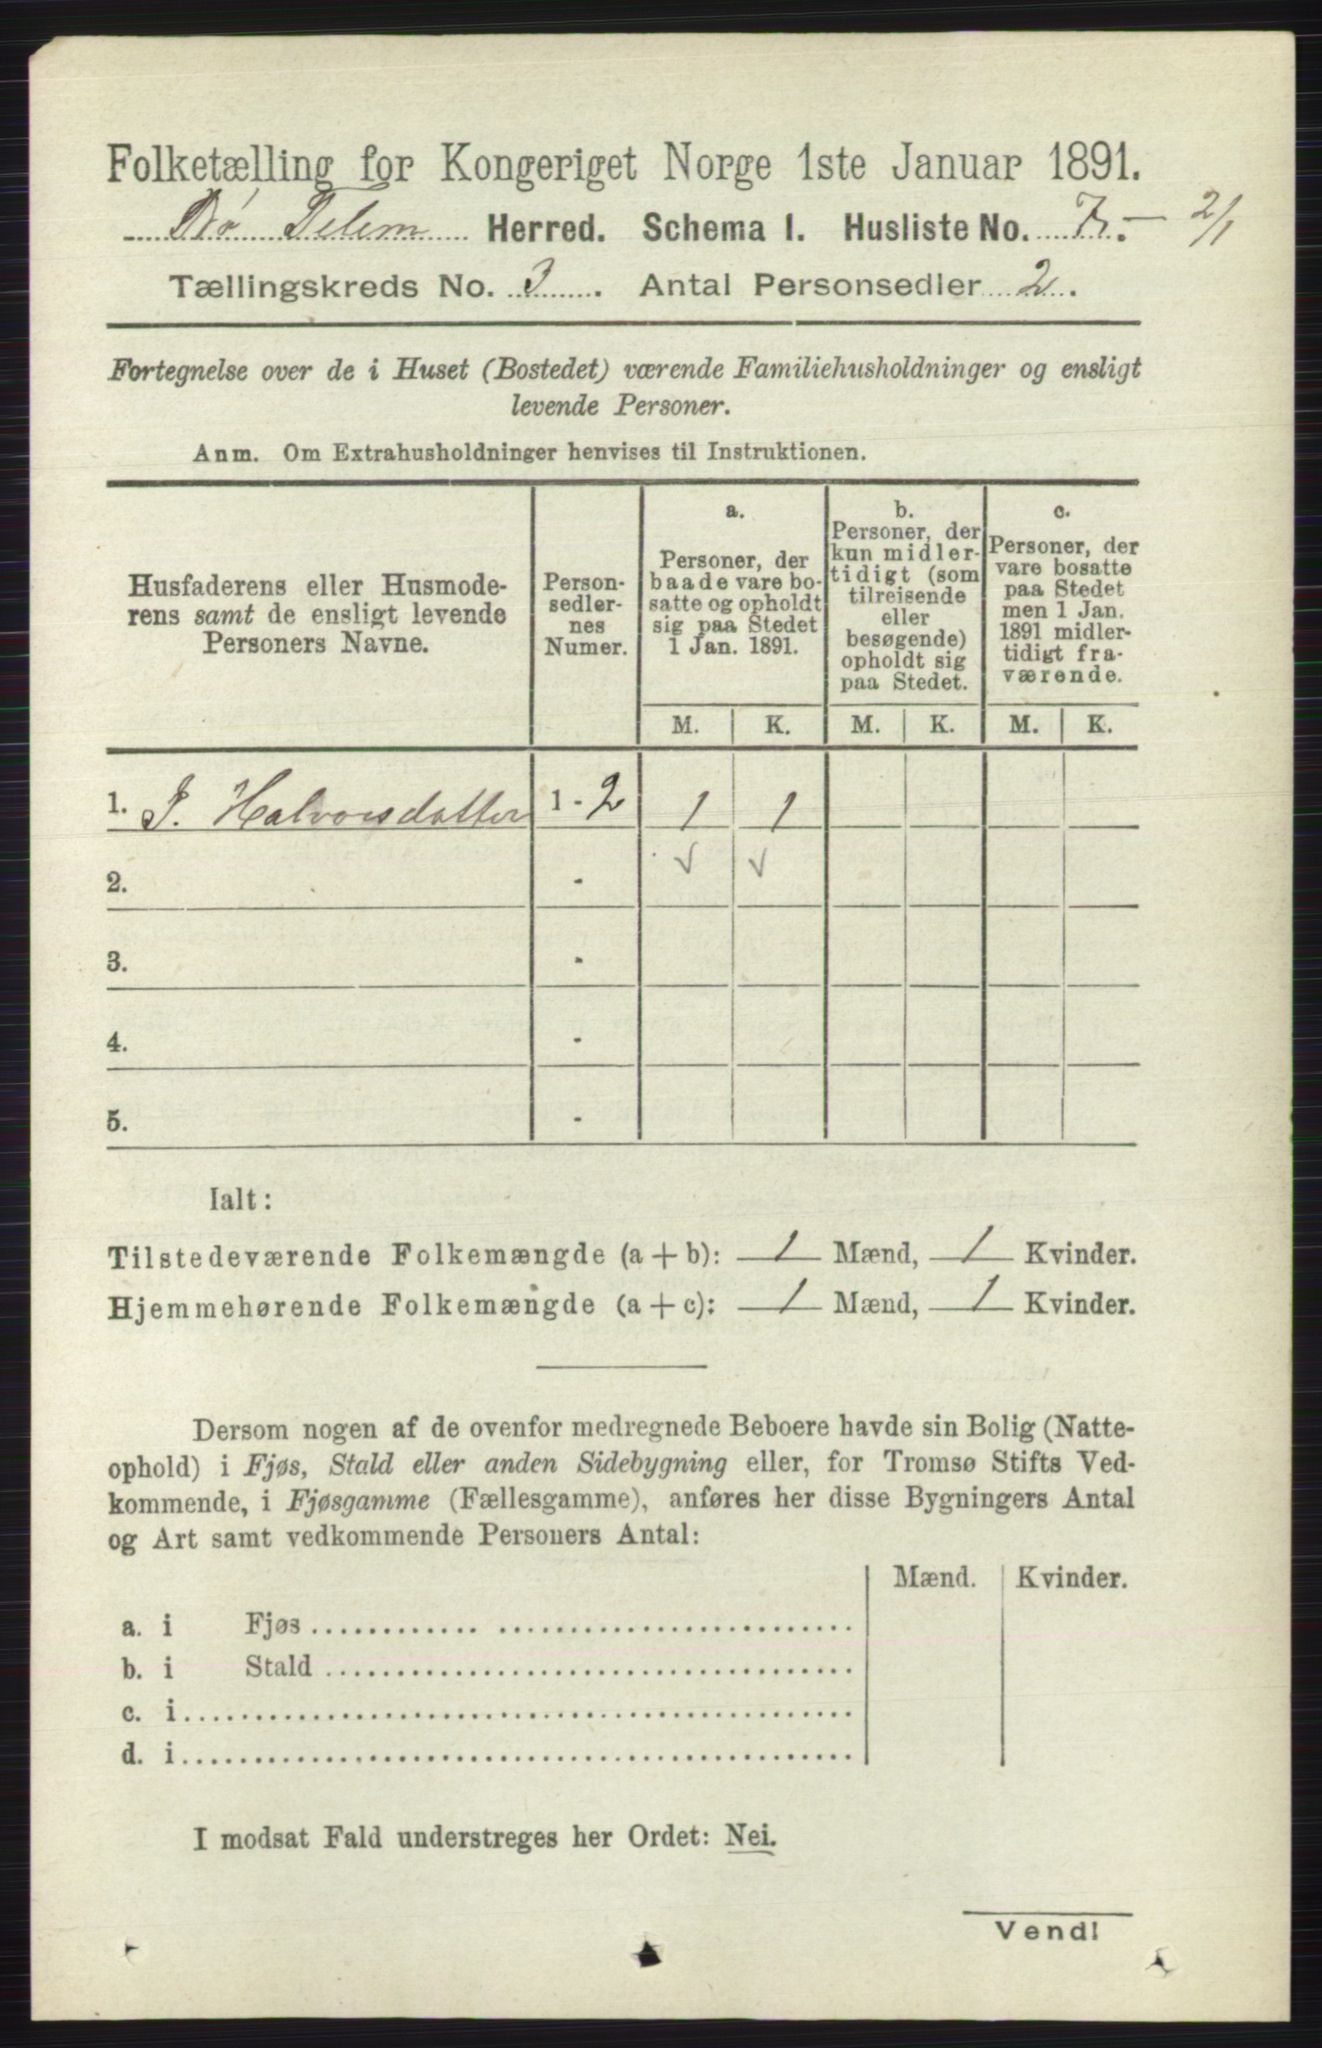 Folketælling for Kongeriget Norge 1ste Januar 1891.
Bø Telem Herred. Schema I. Husliste No. 7.- 2/1
Tællingskreds No. 3. Antal Personsedler 2.
Fortegnelse over de i Huset (Bostedet) værende Familiehusholdninger og ensligt
levende Personer.
Anm. Om Extrahusholdninger henvises til Instruktionen.
Husfaderens eller Husmode-
rens samt de ensligt levende
Personers Navne.
Person-
sedler-
nes
Numer.
a.
Personer, der
baade vare bo-
satte og opholdt
sig paa Stedet
1 Jan. 1891.
b.
Personer, der
kun midler-
tidigt (som
tilreisende
eller
besøgende)
opholdt sig
paa Stedet.
c.
Personer, der
vare bosatte
paa Stedet
men 1 Jan.
1891 midler-
tidigt fra-
værende.
M. K. M. K. M. K.
1. J. Halvorsdatter 1 - 2 1 1
2. - √ √
3. -
4. -
5. -
Ialt:
Tilstedeværende Folkemængde (a + b): 1 Mænd, 1 Kvinder.
Hjemmehørende Folkemængde (a + c): 1 Mænd, 1 Kvinder.
Dersom nogen af de ovenfor medregnede Beboere havde sin Bolig (Natte-
ophold) i Fjøs, Stald eller anden Sidebygning eller, for Tromsø Stifts Ved-
kommende, i Fjøsgamme (Fællesgamme), anføres her disse Bygningers Antal
og Art samt vedkommende Personers Antal:
Mænd. Kvinder.
a. i Fjøs
b. i Stald
c. i
d. i
I modsat Fald understreges her Ordet: Nei.
Vend!